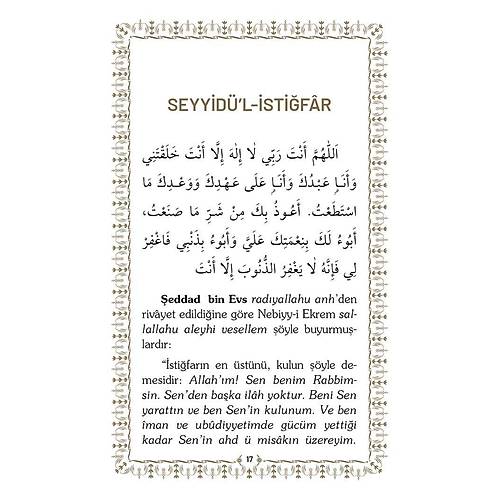 SEYYİDÜ'L-İSTİĞFÂR
اَللّٰهُمَّ أَنْتَ رَبِّي لَا إِلٰهَ إِلَّا أَنْتَ خَلَقْتَنِي
وَأَنَا عَبْدُكَ وَأَنَا عَلَى عَهْدِكَ وَوَعْدِكَ مَا
اسْتَطَعْتُ. أَعُوذُ بِكَ مِنْ شَرِّ مَا صَنَعْتُ،
أَبُوءُ لَكَ بِنِعْمَتِكَ عَلَيَّ وَأَبُوءُ بِذَنْبِي فَاغْفِرْ
لِي فَإِنَّهُ لَا يَغْفِرُ الذُّنُوبَ إِلَّا أَنْتَ
Şeddad bin Evs radıyallahu anh'den
rivâyet edildiğine göre Nebiyy-i Ekrem sal-
lallahu aleyhi vesellem şöyle buyurmuş-
lardır:
"İstiğfarın en üstünü, kulun şöyle de-
mesidir: Allah'ım! Sen benim Rabbim-
sin. Sen'den başka ilâh yoktur. Beni Sen
yarattın ve ben Sen'in kulunum. Ve ben
îman ve ubûdiyyetimde gücüm yettiği
kadar Sen'in ahd ü misâkın üzereyim.
17